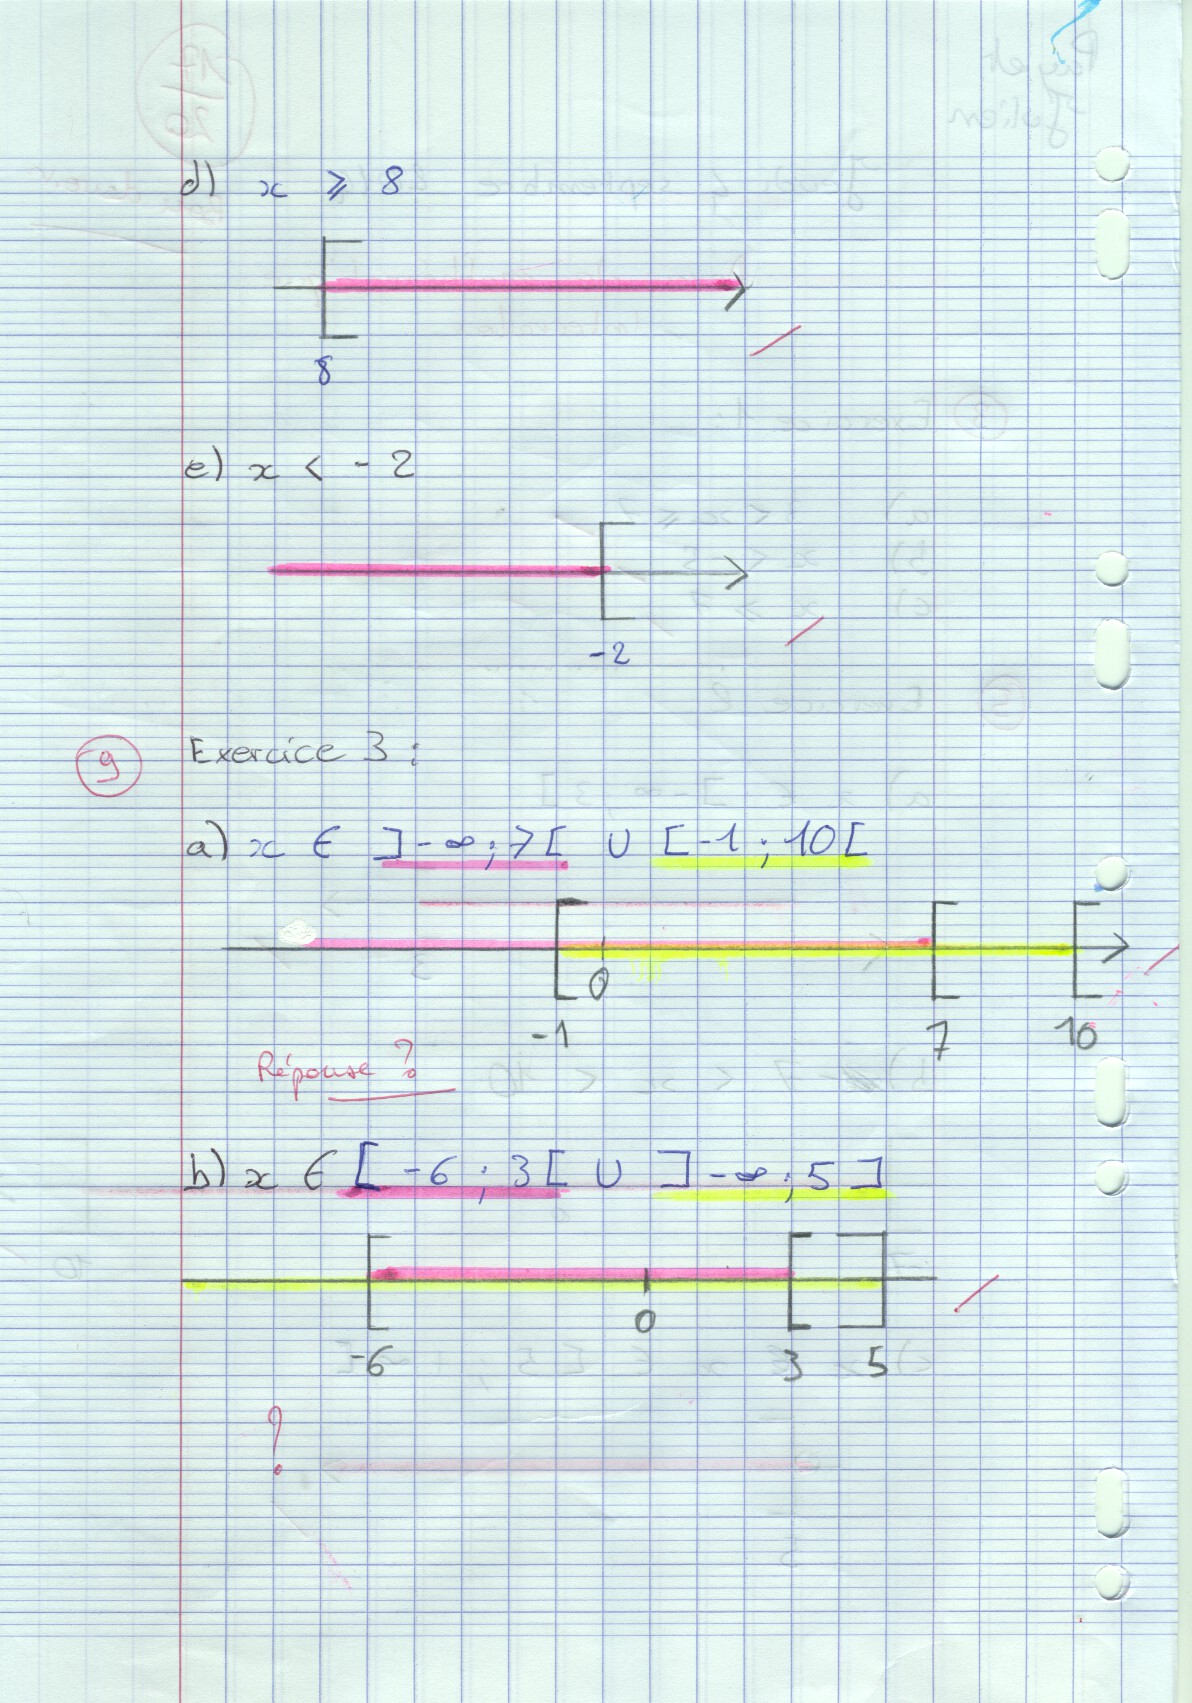 d) x ⩾ 8
8
e) x < - 2
-2
9
Exercice 3 :
a) x ∈ ]-∞ ; 7[ ∪ [-1 ; 10[
0
-1 7 10
Réponse ?
b) x ∈ [-6 ; 3[ ∪ ]-∞ ; 5]
0
-6 3 5
?